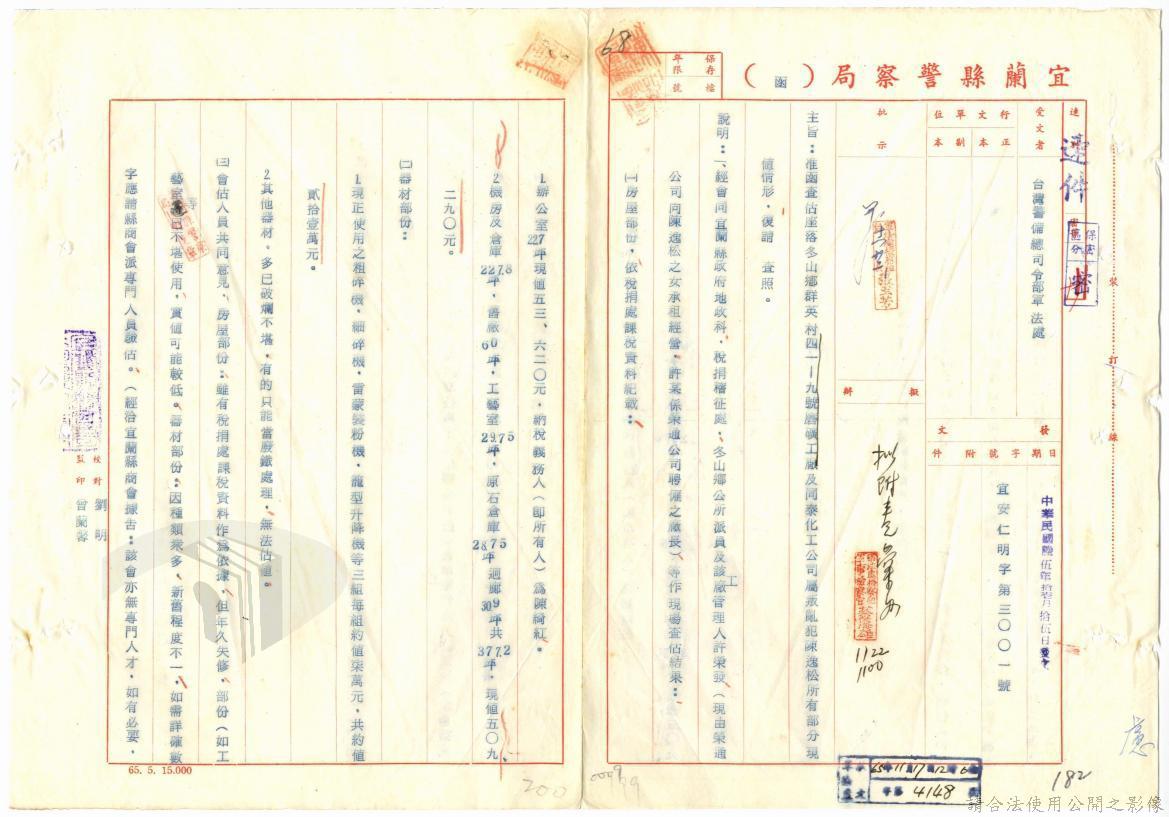 宜蘭縣警察局（函）
保存年限
檔號
速別
速件
保密區分
密
受文者
台灣警備總司令部軍法處
行文單位
正本
副本
批示
擬辦
發文
日期
字號
附件
中華民國陸伍年拾壹月拾伍日發文
宜安仁明字第三〇〇一號
主旨：准函查估座落冬山鄉群英村四一－九號磨礦工廠及同泰化工公司屬叛亂犯陳逸松所有部分現
值情形，復請　查照。
說明：一、經會同宜蘭縣政府地政科，稅捐稽征處，冬山鄉公所派員及該廠管理人許榮發（現由榮通
工
公司向陳逸松之女承租經營，許某係榮通公司聘僱之廠長）等作現場查估結果：
㈠房屋部份，依稅捐處課稅資料紀載：
1.辦公室227坪現值五三、六二〇元，納稅義務人（即所有人）為陳綺紅。
2.機房及倉庫2278坪，舊廠60坪，工藝室2975坪，原石倉庫2875坪迴廊309坪共3772坪，現值五〇九、
二九〇元。
㈡器材部份：
1.現正使用之粗碎機，細碎機，雷蒙製粉機，龍型升降機等三組每組約值柒萬元，共約值
貳拾壹萬元。
2.其他器材，多已破爛不堪，有的只能當廢鐵處理，無法估值。
㈢會估人員共同意見，房屋部份：雖有稅捐處課稅資料作為依據，但年久失修，部份（如工
藝室等）已不堪使用，實值可能較低。器材部份：因種類衆多，新舊程度不一，如需詳確數
字應請縣商會派專門人員驗估。（經洽宜蘭縣商會據告：該會亦無專門人才，如有必要，
校對
劉明
監印
曾蘭馨
裝訂線
68
1122
1100
182
200
65年11月17日12時
字第4148號
65. 5. 15.000
請合法使用公開之影像